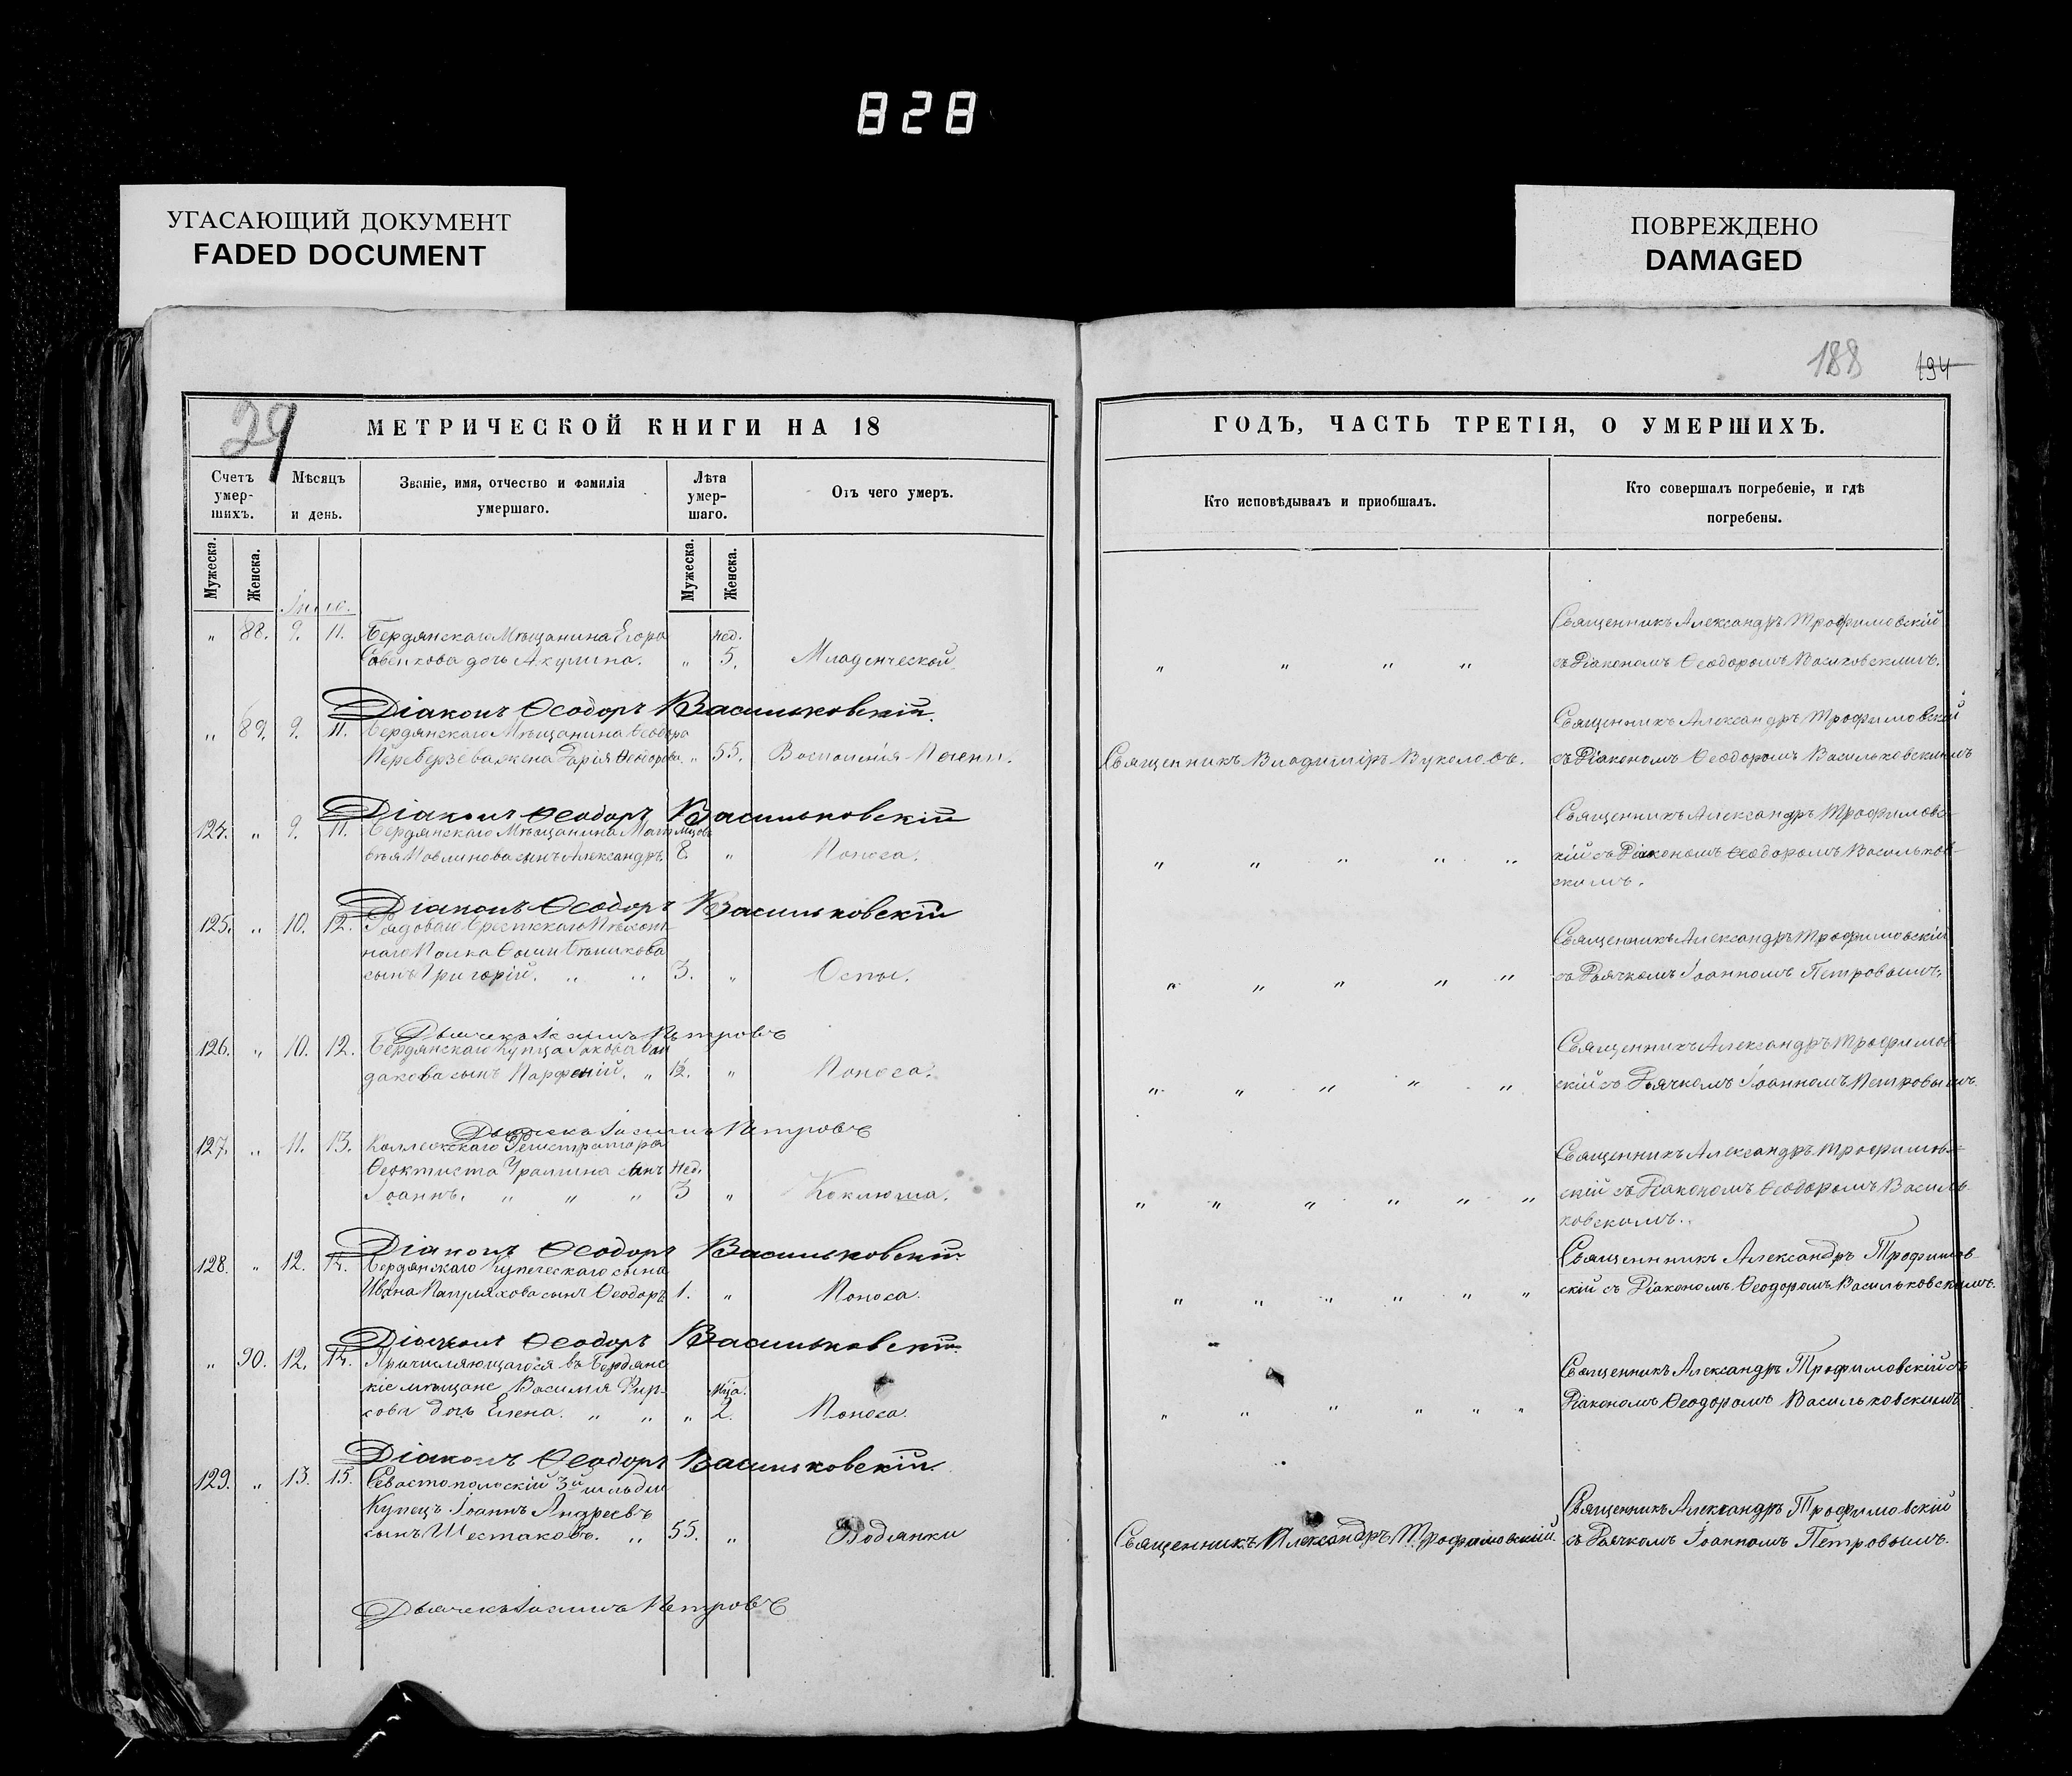 828
УГАСАЮЩИЙ ДОКУМЕНТ
FADED DOCUMENT
ПОВРЕЖДЕНО
DAMAGED
188 194
29
МЕТРИЧЕСКОЙ КНИГИ НА 18
ГОДЪ, ЧАСТЬ ТРЕТІЯ, О УМЕРШИХЪ.
Счетъ умер-шихъ.
Мѣсяцъ и день.
Званіе, имя, отчество и фамилія умершаго.
Лѣта умер-шаго.
Отъ чего умеръ.
Кто исповѣдывалъ и пріобщалъ.
Кто совершалъ погребеніе, и гдѣ погребены.
Мужеска. Женска.
Мужеска. Женска.
88. 9. 11. Бердянскаго Мѣщанина Егора нед. Священникъ Александръ Трофимовскій
дочь Акулина. „ 5. Младенческой. „ „ „ „ съ Діакономъ Ѳеодоромъ
Діаконъ Ѳеодоръ Васильковскій.
„ 89. 9. 11. Бердянскаго Мѣщанина Ѳеодора Священникъ Александръ Трофимовскій
жена Дарія „ 55. Воспаленія Печени. Священникъ Владиміръ Вуколовъ. съ Діакономъ Ѳеодоромъ Васильковскимъ
Діаконъ Ѳеодоръ Васильковскій
124. „ 9. 11. Бердянскаго Мѣщанина Мат- мѣсяц. Священникъ Александръ Трофимовс-
вѣя сынъ Александръ. 8. „ Поноса. „ „ „ „ „ кій съ Діакономъ Ѳеодоромъ Васильков-
скимъ.
Діаконъ Ѳеодоръ Васильковскій
125. „ 10. 12. Рядовой Пѣхот-
наго Полка Священникъ Александръ Трофимовскій
сынъ Григорій. „ „ 3. „ Оспы. „ „ „ „ „ съ Дьячкомъ Іоанномъ Петровымъ.
Дьячекъ Іоаннъ Петровъ
126. „ 10. 12. Бердянскаго Купца Якова Священникъ Александръ Трофимов-
сынъ Парфеній. „ „ Поноса. „ „ „ „ „ скій съ Дьячкомъ Іоанномъ Петровымъ.
Дьячекъ Іоаннъ Петровъ
127. „ 11. 13. Коллежскаго Регистратора Священникъ Александръ Трофимов-
Ѳеоктиста сынъ нед.
Іоаннъ. „ „ „ 3 „ Коклюша. „ „ „ „ „ „ скій съ Діакономъ Ѳеодоромъ Василь-
ковскимъ.
Діаконъ Ѳеодоръ Васильковскій
128. „ 12. 14. Бердянскаго Купеческаго сына Священникъ Александръ Трофимов-
Ивана сынъ Ѳеодоръ 1. „ Поноса. „ „ „ „ „ „ скій съ Діакономъ Ѳеодоромъ Васильковскимъ.
Діаконъ Ѳеодоръ Васильковскій
„ 90. 12. 14. Причисляющагося въ Бердянс- Священникъ Александръ Трофимовскій съ
кіе мѣщане Василія мѣс.
дочь Елена. „ „ „ 2. Поноса. „ „ „ „ „ „ Діакономъ Ѳеодоромъ Васильковскимъ
Діаконъ Ѳеодоръ Васильковскій.
129. „ 13. 15. Севастопольскій 3й гильдіи
Купецъ Іоаннъ Андреевъ Священникъ Александръ Трофимовскій
сынъ Шестаковъ. „ 55. „ Водянки Священникъ Александръ Трофимовскій. съ Дьячкомъ Іоанномъ Петровымъ.
Дьячекъ Іоаннъ Петровъ